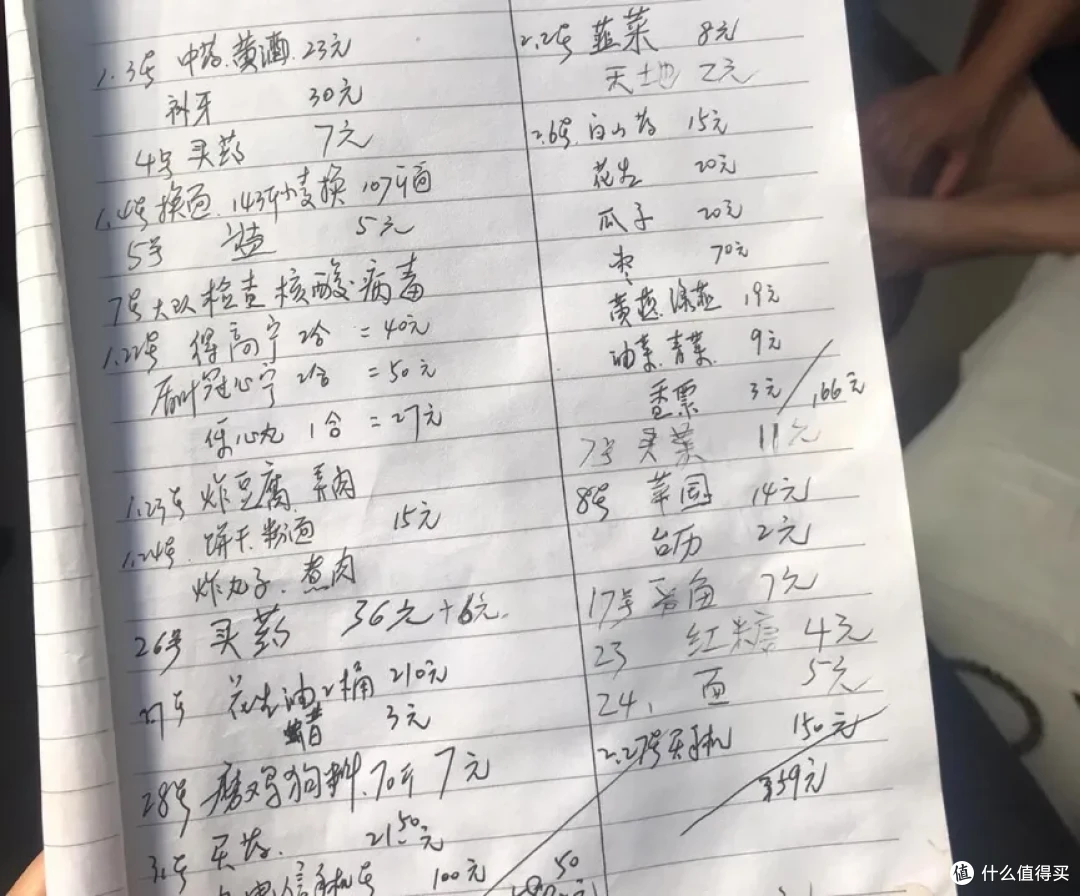 1.3号 中药.黄酒.23元
补牙 30元
4号买药 7元
1.4号换面.143斤小麦换107斤面
5号 5元
7号大队检查核酸病毒
1.22号 得高宁 2合 = 40元
冠心宁 2合 = 50元
保心丸 1合 = 27元
1.23号 炸豆腐.煮肉
1.24号 饼干.粉面 15元
炸丸子.煮肉
26号 买药 36元+6元.
27号 花生油2桶 210元
醋 3元
28号 磨鸡狗料.70斤 7元
31号 买药. 21.50元
信手机号 100元
2.2号 韭菜 8元
天地 2元
2.6号.白山药 15元
花生 20元
瓜子 20元
枣 70元
19元
油菜.青菜. 9元
3元 166元
7号 买菜 11元
8号 菜园 14元
台历 2元
17号 鱼 7元
23 红糖 4元
24. 面 5元
2.27号买手机 150元
359元
50
值 什么值得买